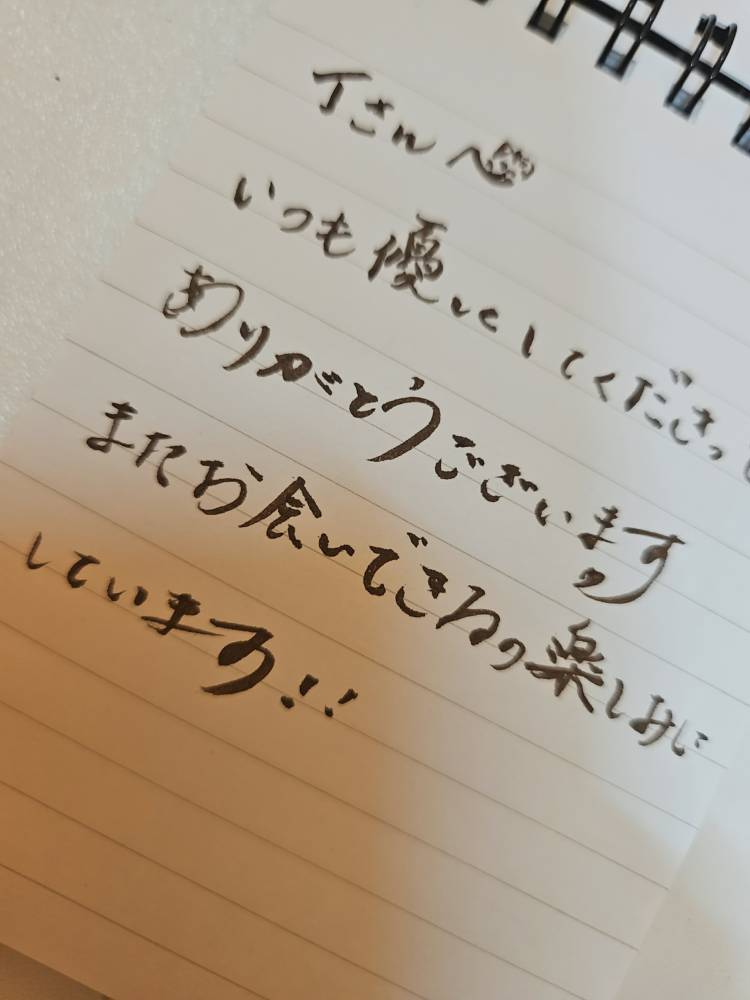 Tさんへ
いつも優しくしてくださっ
ありがとうございます
またお会いできるの楽しみに
しています!!